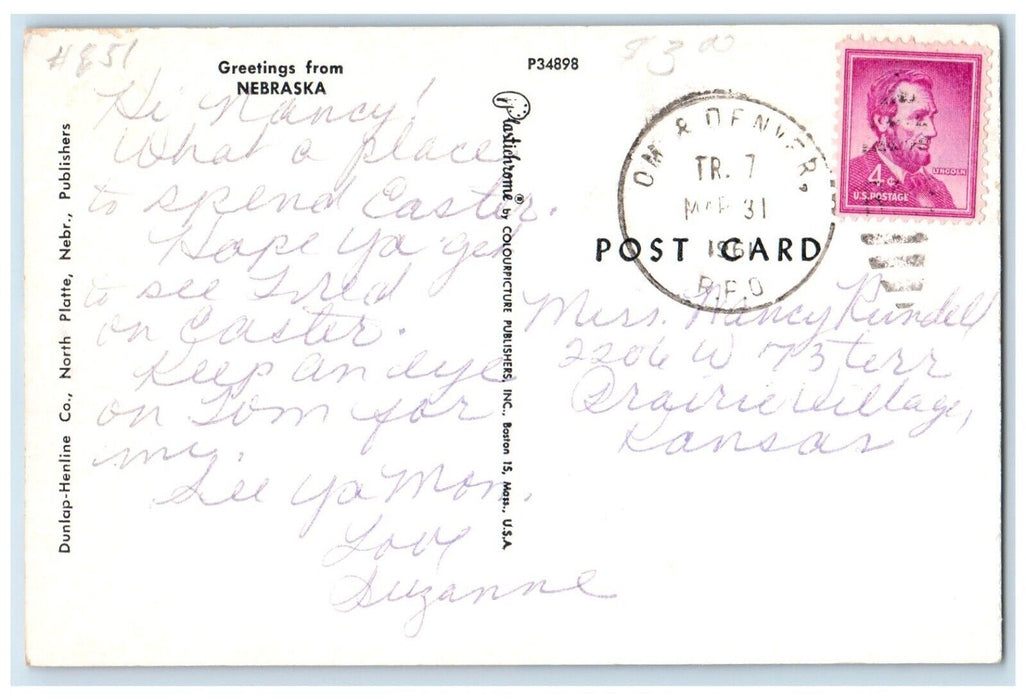 #851
Greetings from
NEBRASKA
P34898
$3.00
Hi Nancy!
What a place
to spend Easter.
Hope ya get
to see Fred
on Easter.
Keep an eye
on Tom for
my.
See ya Mon.
Love
Suzanne
Dunlap-Henline Co., North Platte, Nebr., Publishers
Plastichrome® by COLOURPICTURE PUBLISHERS, INC., Boston 15, Mass., U.S.A.
OM. & DENVER,
TR. 7
MAR 31
1961
R.P.O.
4¢
LINCOLN
U.S. POSTAGE
POST CARD
Miss. Nancy Rundell
2206 W 73 terr
Prairie Village,
Kansas